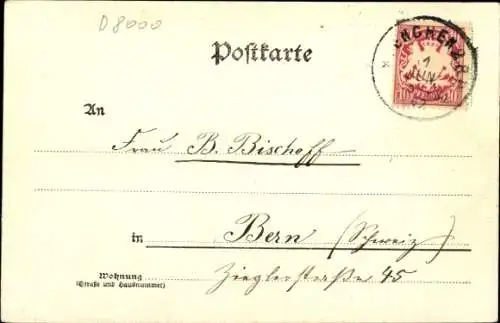 D 8000
Postkarte
MÜNCHEN 2 B.P.
7
JUN
10 10
An
Frau B. Bischoff
in Bern (Schweiz)
Wohnung
(Straße und Hausnummer)
Zieglerstraße 45